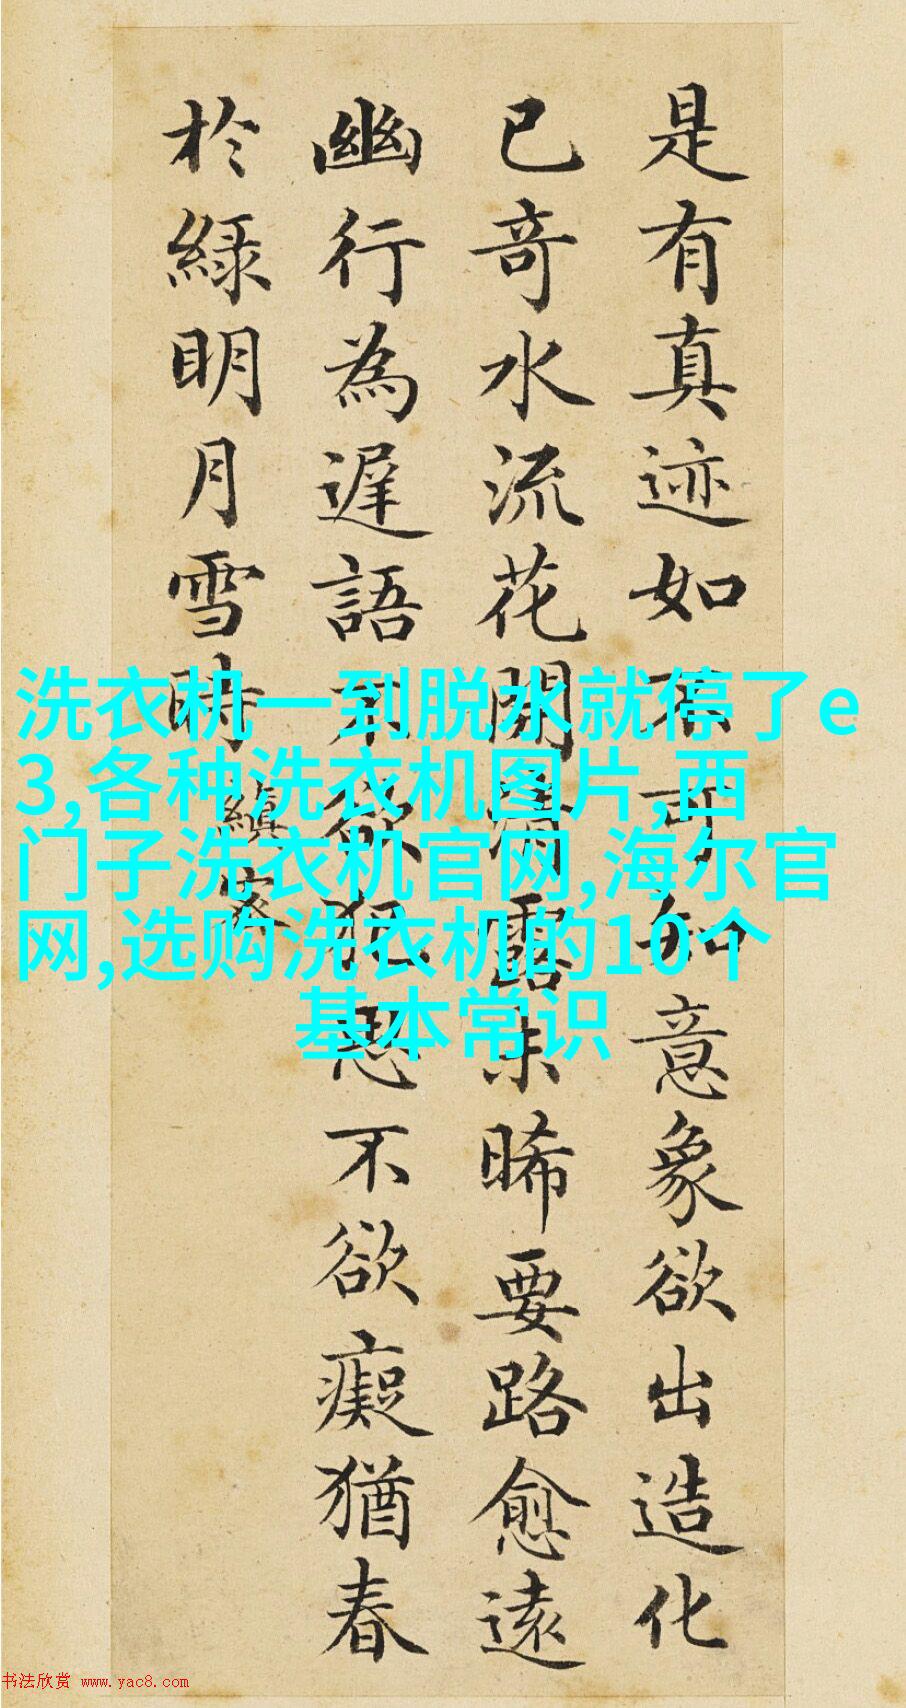 是有真迹如不可知意象欲出造化
已奇水流花開清露未晞要路愈遠
幽行為遲語不欲犯思不欲癡猶春
於綠明月雪時
縝密
洗衣机一到脱水就停了e
3,各种洗衣机图片,西
门子洗衣机官网,海尔官
网,选购洗衣机的10个
基本常识
书法欣赏 www.yac8.com